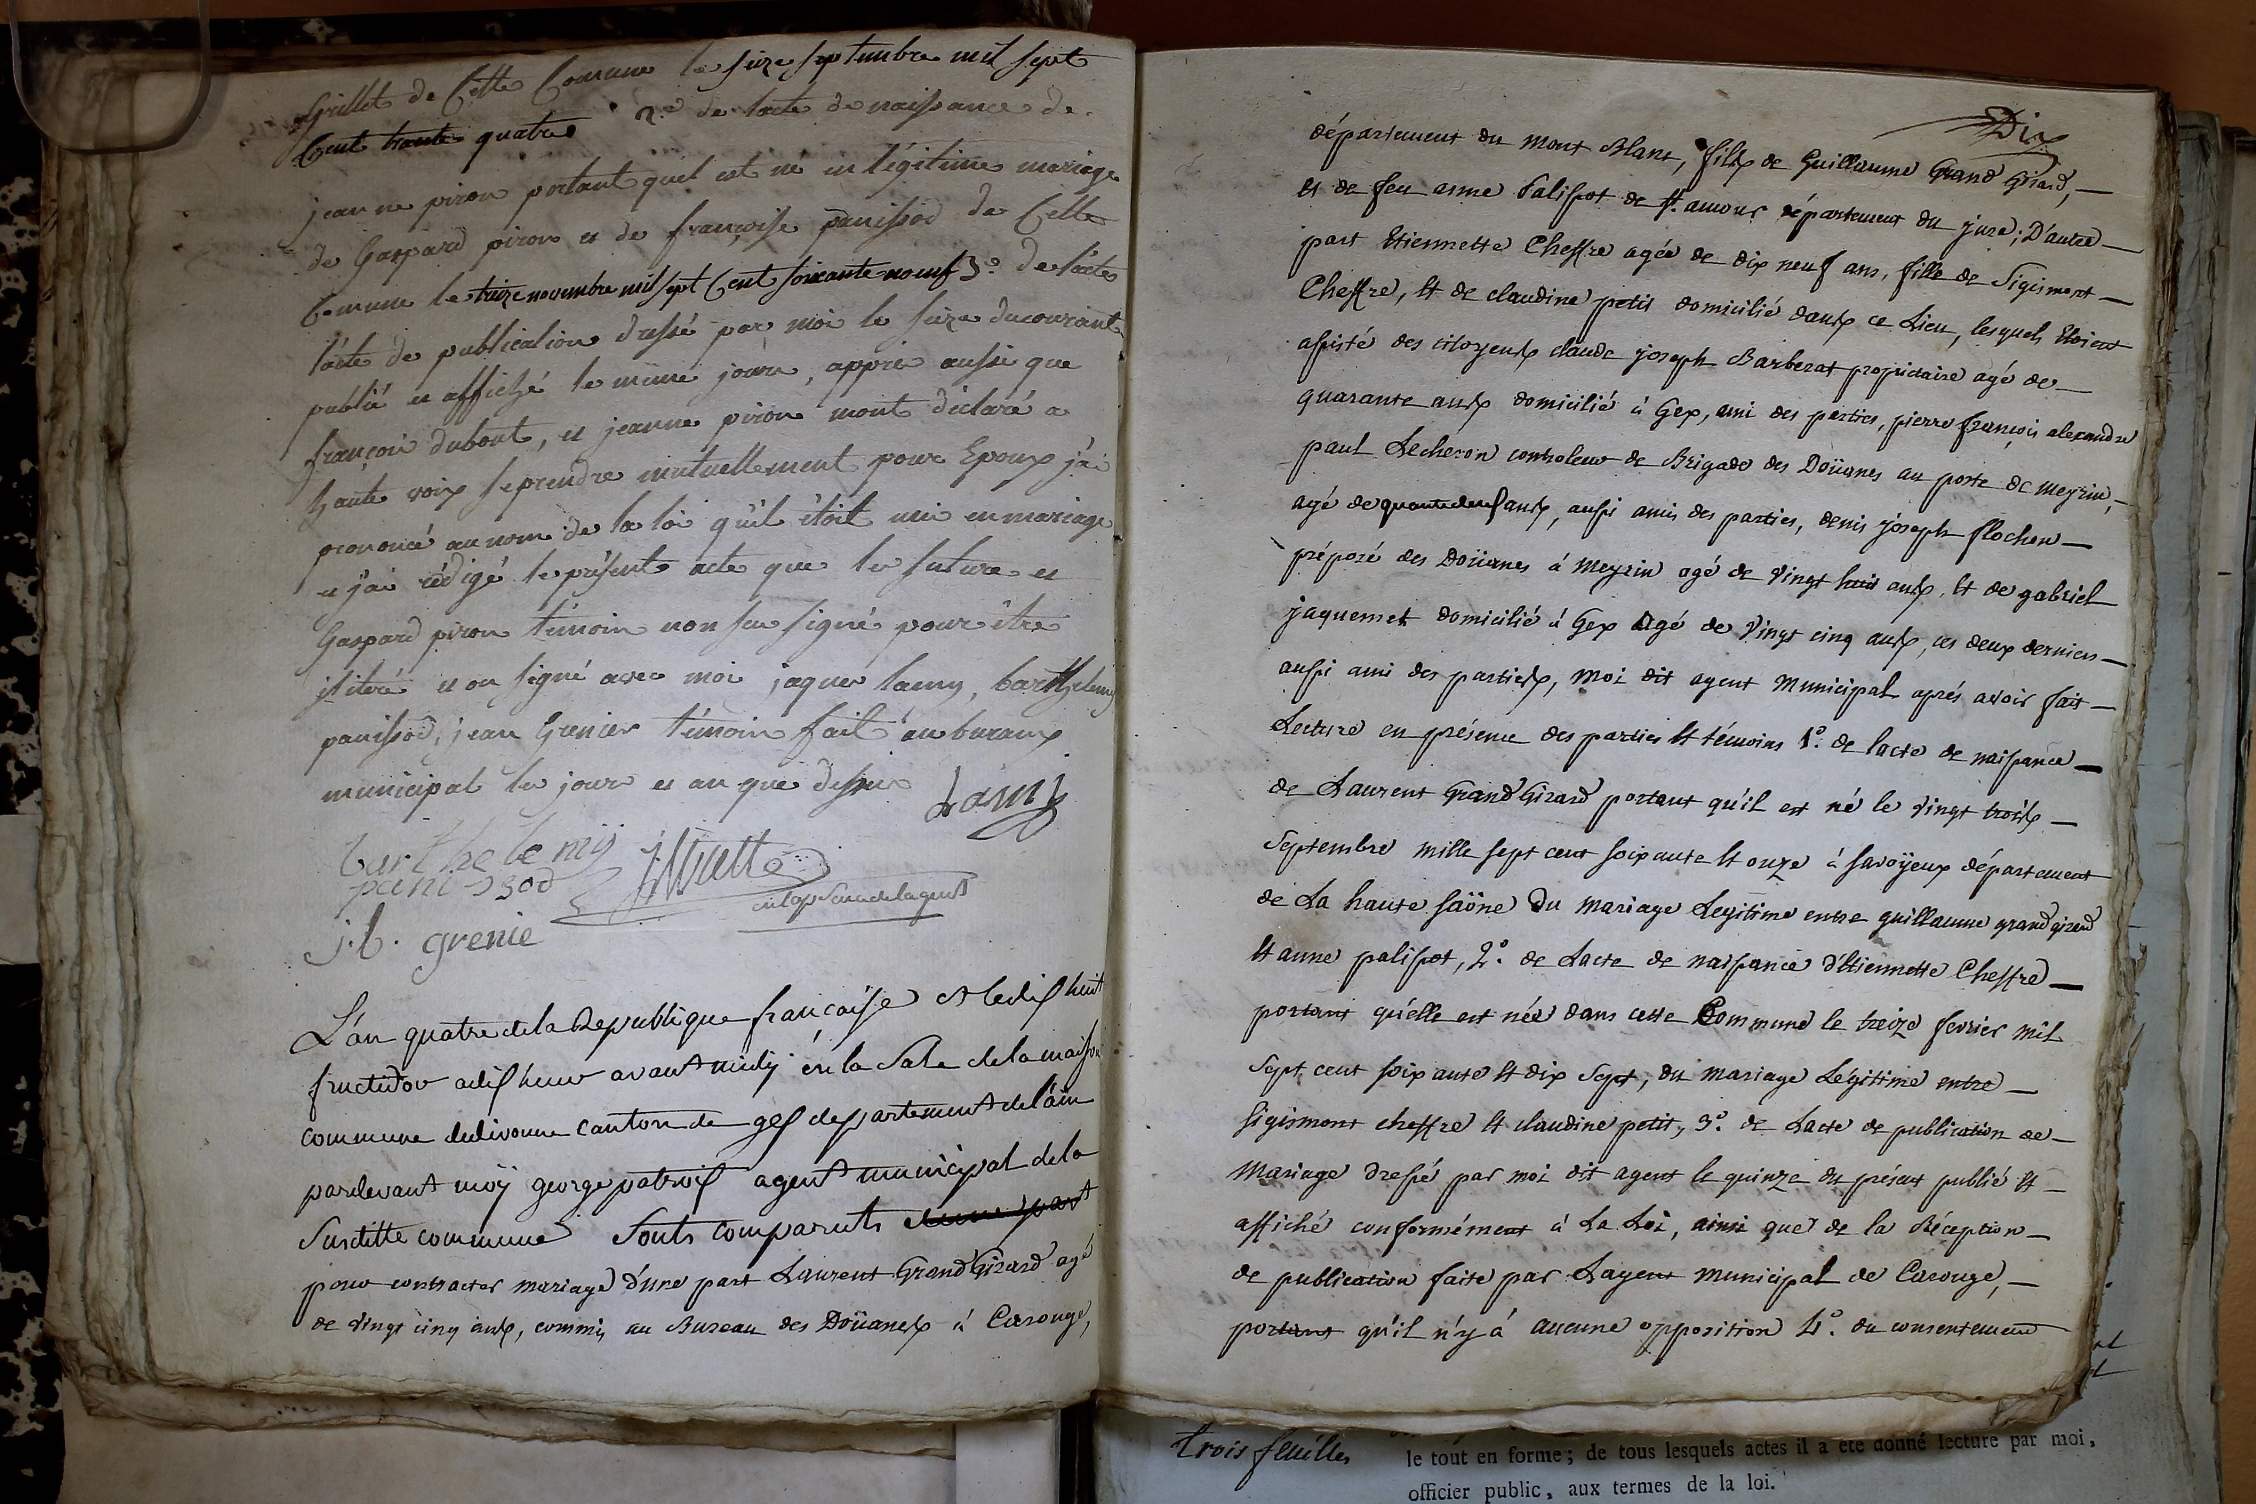 Grillet de Cette Comune le seize septembre mil sept
Cent trante quatre 2.e de lacte de naissance de
jeanne piron portant quel est né en légitime mariage
de Gaspard piron et de françoise panissod de Cette
Comune le treize novembre mil sept Cent soixante neuf 3.e de l'acte
l'acte de publication dressé par moi le seize du courant
publié et affiché le même jour, apprès aussi que
françoi dubout, et jeanne piron mont déclaré a
haute voix se prendre mutuellement pour Epoux j'ai
prononcé au nom de la loi qu'il étoit uni en mariage
et j'ai rédigé le présent acte que les future et
Gaspard piron témoin non seu signé pour être
ilitéré et on signé avec moi jaques lamy, barthelemy
panissod, jean Grenier témoin fait au buraux
municipal les jour et an que dessus Lamy
barthelemy
panissod
j.b. grenie
L'an quatre de la Republique françaisse et le dix huit
fructidor a dix heur avant midy én la Sale de la maison
commune de divonne canton de gex departement de l'ain
pardevant moÿ george patroix agent municipal de la
Susditte commune Sonts comparuts d'une part
pour contracter mariage d'une part Laurent Grand Girard agé
de vingt cinq ans, commis au Bureau des Doüanes à Carouge,
Dix
département du mont Blanc, fils de Guillaume Grand Girard,
et de feu anne Palispot de st. amour département du jura; D'autre
part Etiennette Cheffre agée de dix neuf ans, fille de Sigismont
Cheffre, et de claudine petit domicilié dans ce Lieu, lesquels Etoient
assisté des citoyens claude joseph Barberat propriétaire agé de
quarante ans domicilié à Gex, ami des parties, pierre françois alexandre
paul Lecheron controleur de Brigade des Doüanes au poste de meyrin,
agé de ans, aussi amis des parties, denis joseph flochon
préposé des Doüanes à Meyrin agé de vingt huit ans, et de gabriel
jaquemet domicilié à Gex Agé de vingt cinq ans, ces deux derniers
aussi ami des parties, moi dit agent municipal aprés avoir fait
Lecture en présence des parties et témoins 1.° de lacte de naissance
de Laurent Grand Girard portant qu'il est né le vingt trois
Septembre mille sept cent soixante et onze à savoÿeux département
de La haute sâône Du mariage Legitime entre guillaume grand girard
et anne palispot, 2.° de Lacte de naissance d'Etiennette Cheffre
portant qu'elle est née dans cette Commune le treize fevrier mil
sept cent soixante et dix sept, du mariage Légitime entre
sigismont cheffre et claudine petit, 3.° de Lacte de publication de
Mariage dressé par moi dit agent le quinze du présent publié et
affiché conformément à La Loi, ainsi que de la Réception
de publication faite par Lagent municipal de Carouge,
portant qu'il n'y à aucune opposition 4.° du consentement
trois feuilles
le tout en forme; de tous lesquels actes il a été donné lecture par moi,
officier public, aux termes de la loi.